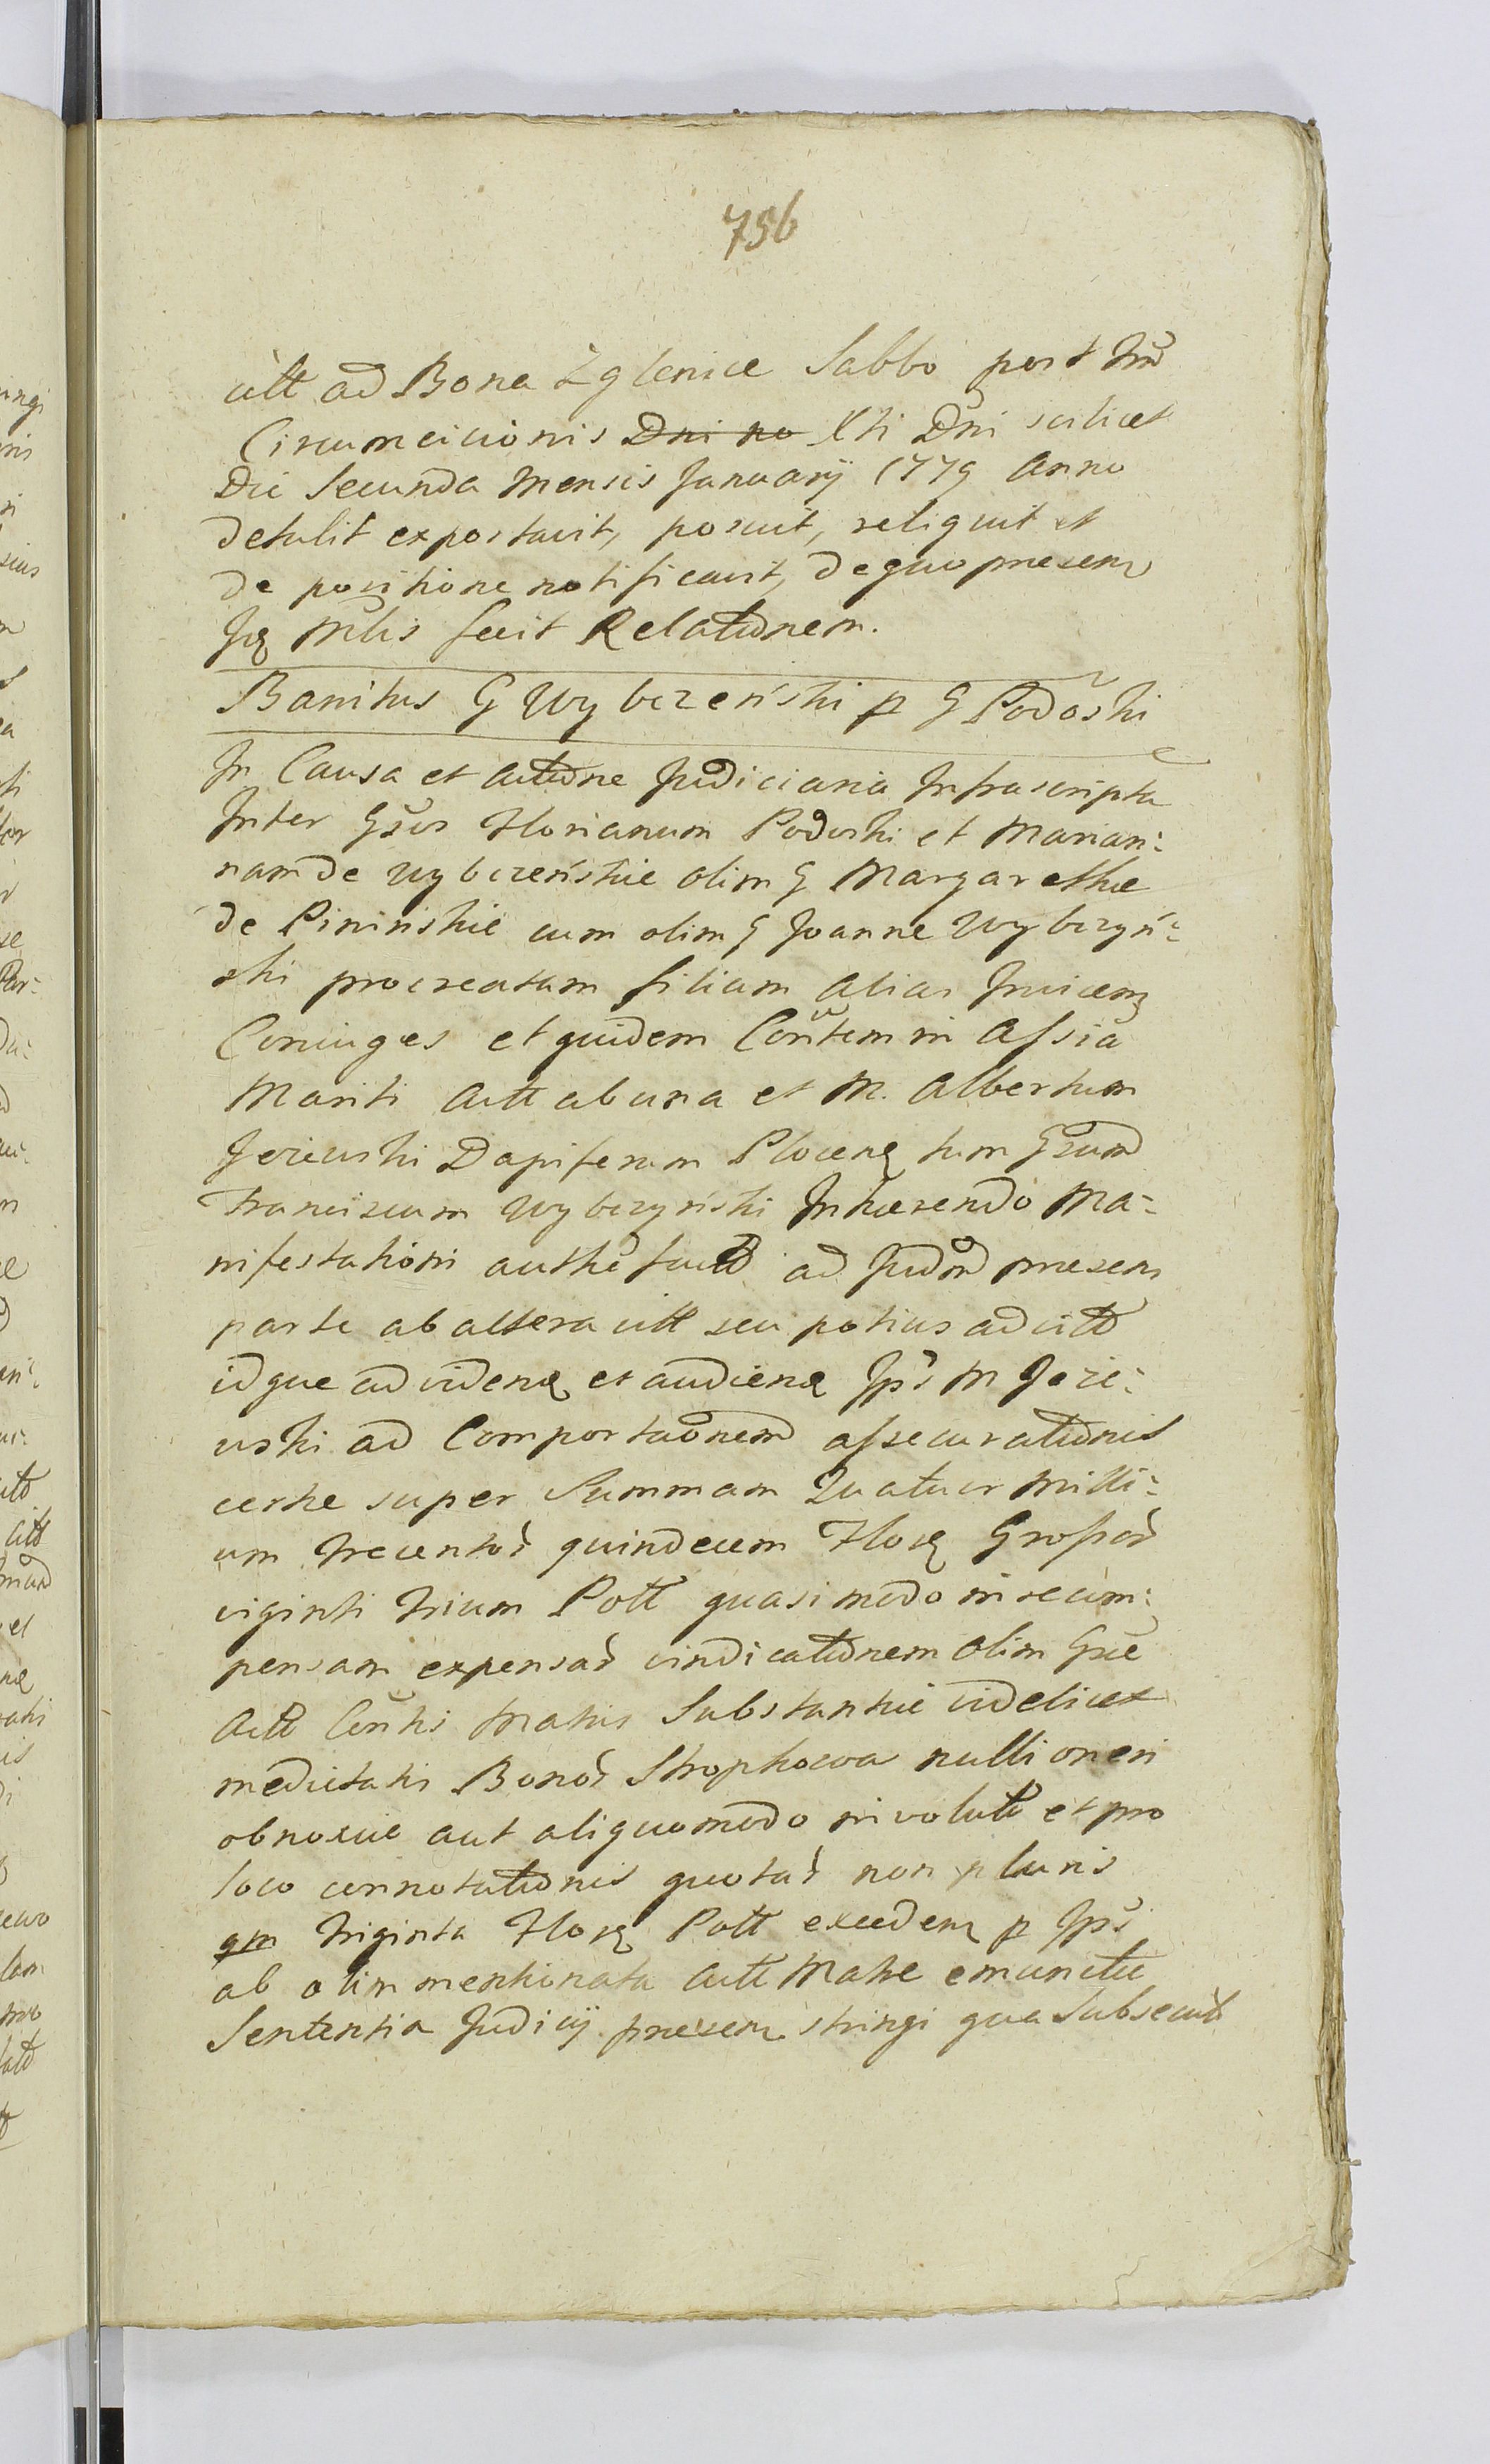 756
citt ad Bona Zglenice Sabbo post Fm
Circumcicionis Dni no Xti Dni scilicet
Die Secunda Mensis Januarij 1779 Anno
detulit exportavit, posuit, reliquit et
de positione notificavit, de quo presenq
Jq Mlis fecit Relationem.
Banitus G Wybczeński p G Podoski
In Causa et actione Judiciaria Infrascripta
Inter Gsos Florianum Podoski et Marian:
nam de Wybczeńskie olim G Margarethae
de Pininskie cum olim G Joanne Wybczyń:
ski procreatam filiam alias Invicem
Coniuges et quidem Contem in Assia
Mariti Actt ab una et M. Albertum
Jeziewski Dapiferum Plocenq tum Gsum
Franciscum Wybczyński Inhaerendo Ma:
nifestationi authe fact ad Judm presens
parte ab altera citt seu potius ad citt
idque ad videnq et audienq Jps M Jezie:
wski ad Comportaonem assecurationis
certae super Summam Quatuor Milli:
um trecentor quindecem Florq Grossor
viginti trium Poll quasi modo in recom:
pensam expensar vindicationem olim Gsae
Actt Contis Matris Substantiae videlicet
medietatis Bonor Strophowa nulli oneri
obnoxiae aut aliquomodo involut et pro
loco connotationis quotar non pluris
qm triginta Florq Poll excedenq p Jps
ab olim mentionata Actt Matre emunctae
Sententia Judicij presenq stringi qua Subsecut